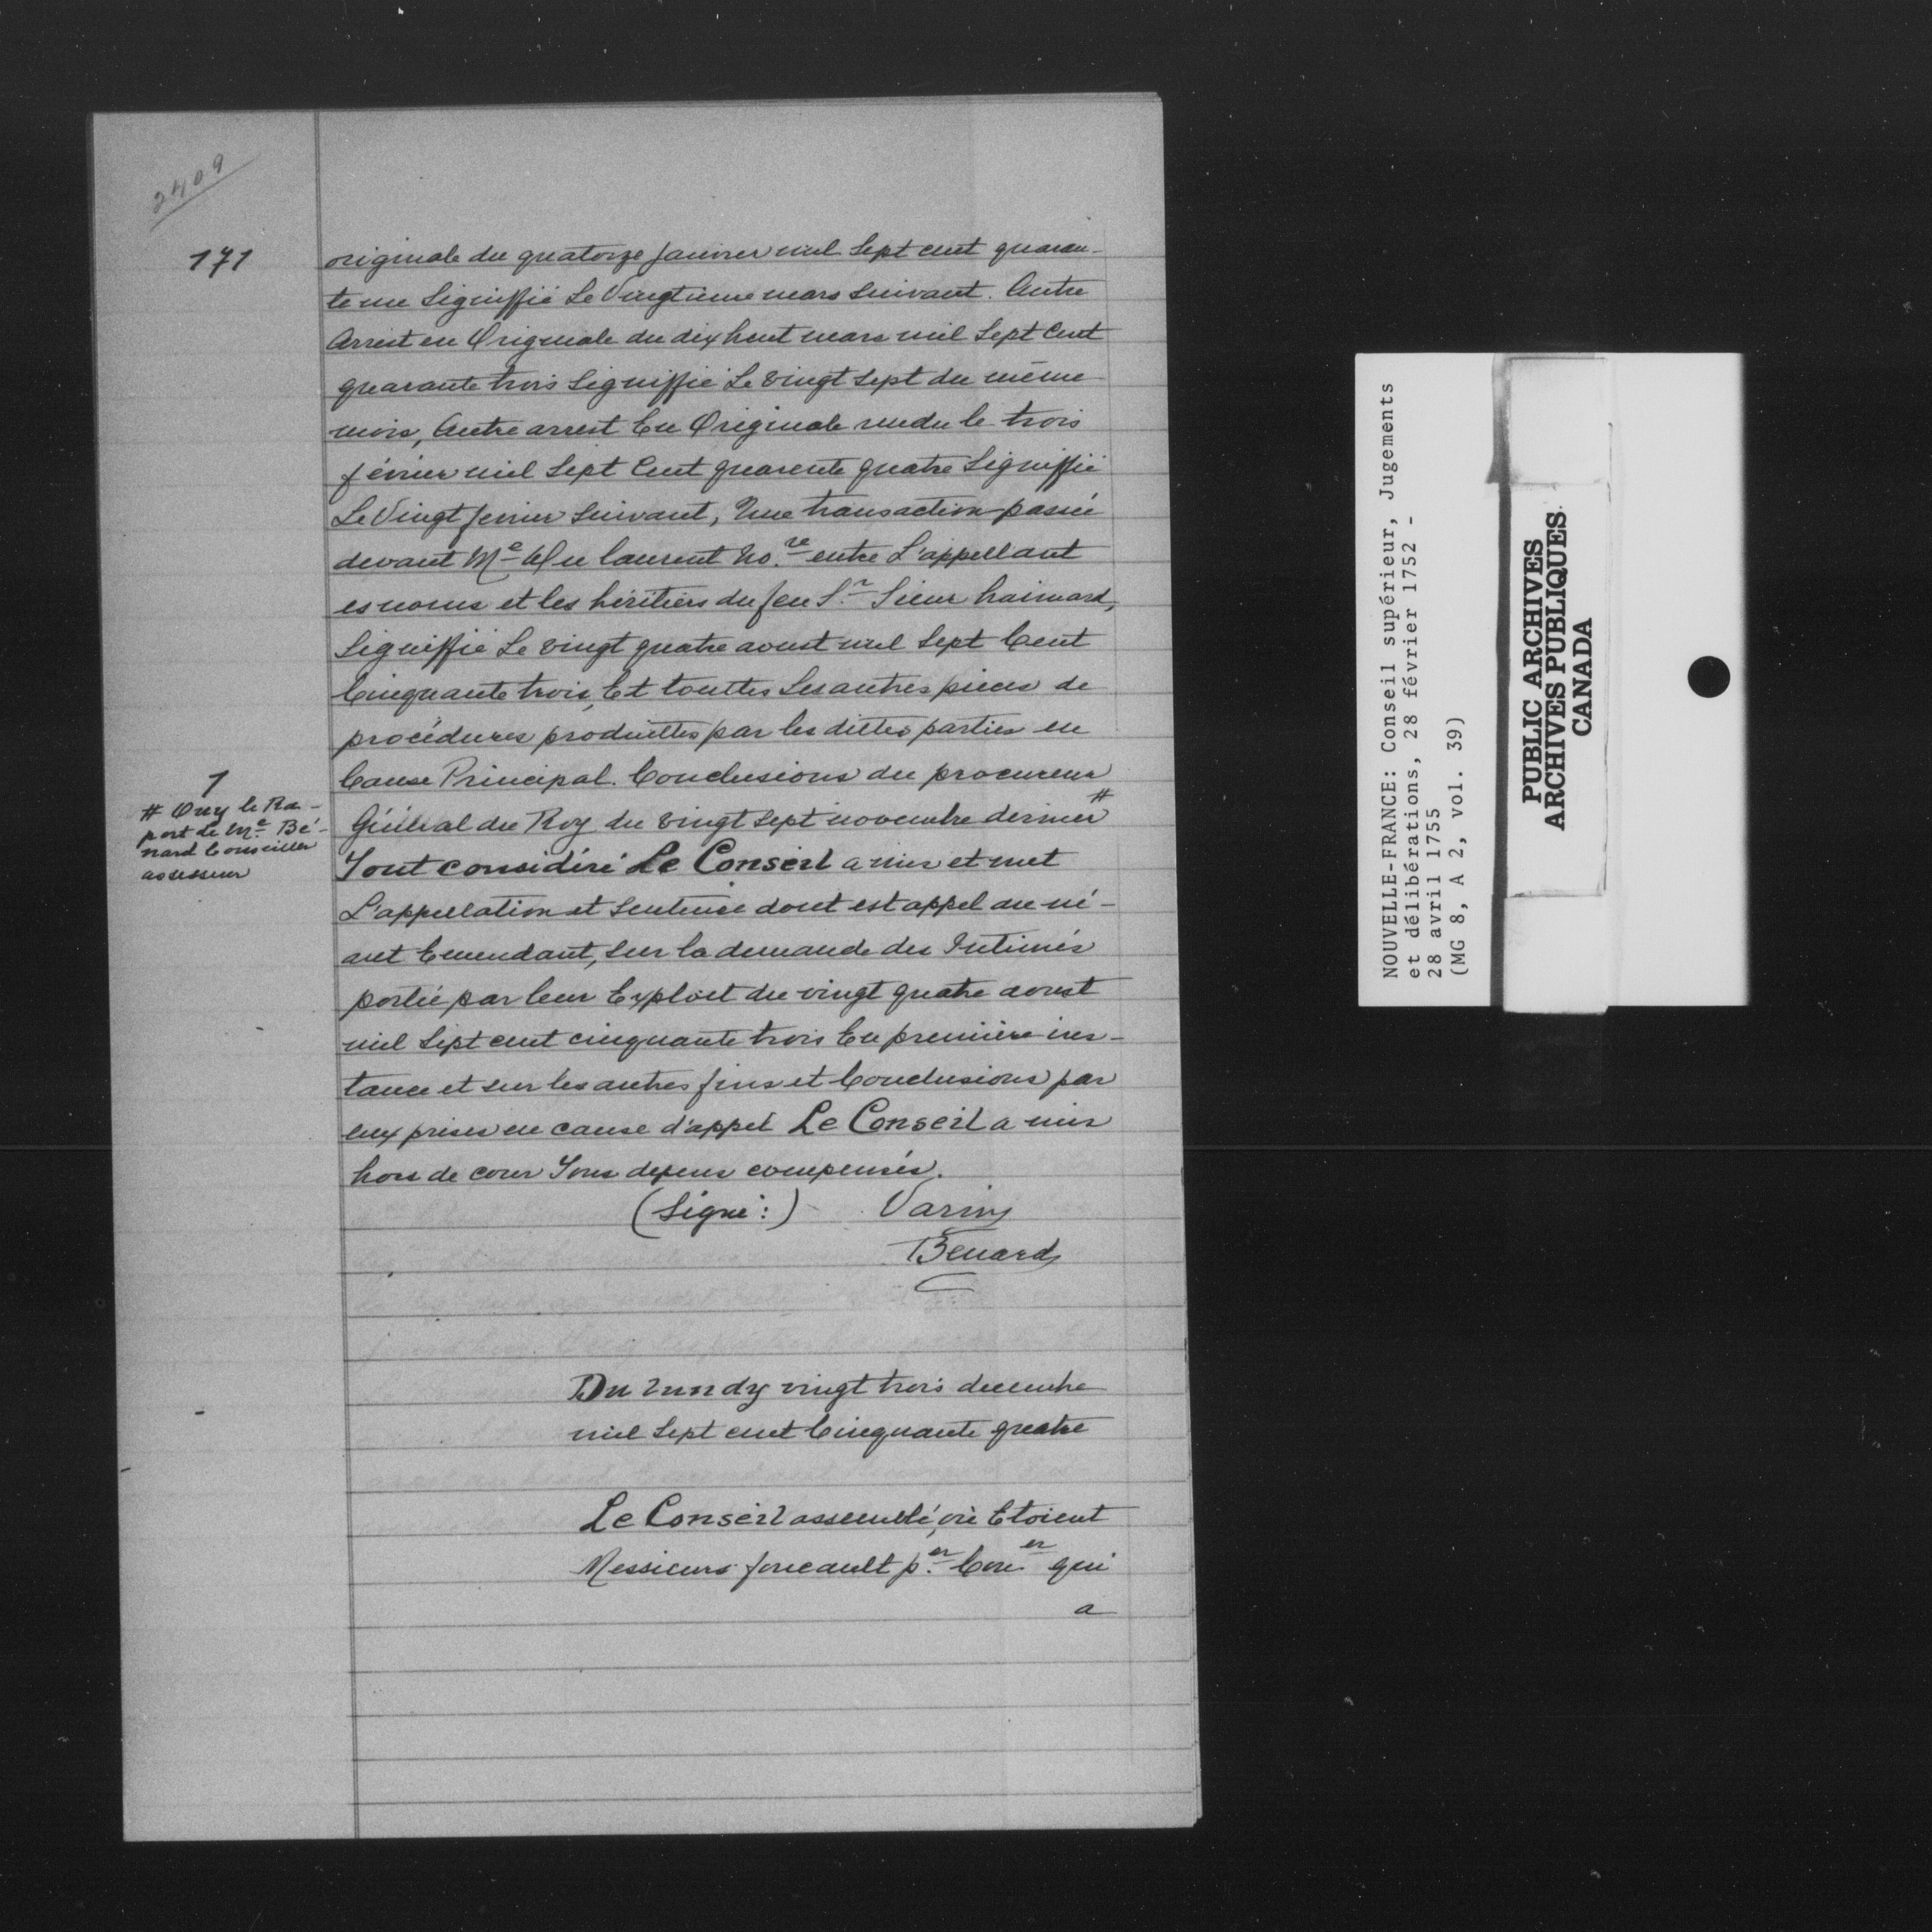 2409
171
originale du quatorze Janvier mil Sept cent quaran-
te un Signiffié Le Vingtieme mars Suivant. Autre
Arrest en Originale du dix huit mars mil Sept Cent
quarante trois Signiffié Le vingt Sept du même
mois, Autre arrest En Originale rendu le trois
février mil Sept Cent quarente quatre Signiffié
Le Vingt fevrier Suivant, Une transaction passée
devant Me Du laurent No.re entre L'appellant
es noms et les héritiers du feu Sr Sieur haimard,
Signiffié Le vingt quatre aoust mil Sept Cent
Cinquante trois, Et touttes Les autres pieces de
procédures produittes par les dittes parties en
Cause Principal. Conclusions du procureur
Général du Roy du vingt Sept novembre dernier #
1
# Ouy le Ra-
port de Me Bé-
nard Conseiller
assesseur
Tout considéré Le Conseil a mis et met
L'appellation et Sentence dont est appel au né-
ant Emendant, Sur la demande des Intimés
portée par leur Exploit du vingt quatre aoust
mil Sept cent cinquante trois En première ins-
tance et sur les autres fins et Conclusions par
eux prises en cause d'appel Le Conseil a mis
hors de cour Tous depens compensés.
(Signé:) Varin
Benard
Du Lundy vingt trois decembre
mil Sept cent Cinquante quatre
Le Conseil assemblé, où Etoient
Messieurs foucault p.er Con.er qui
a
NOUVELLE-FRANCE: Conseil supérieur, Jugements
et délibérations, 28 février 1752 -
28 avril 1755
(MG 8, A 2, vol. 39)
PUBLIC ARCHIVES
ARCHIVES PUBLIQUES
CANADA